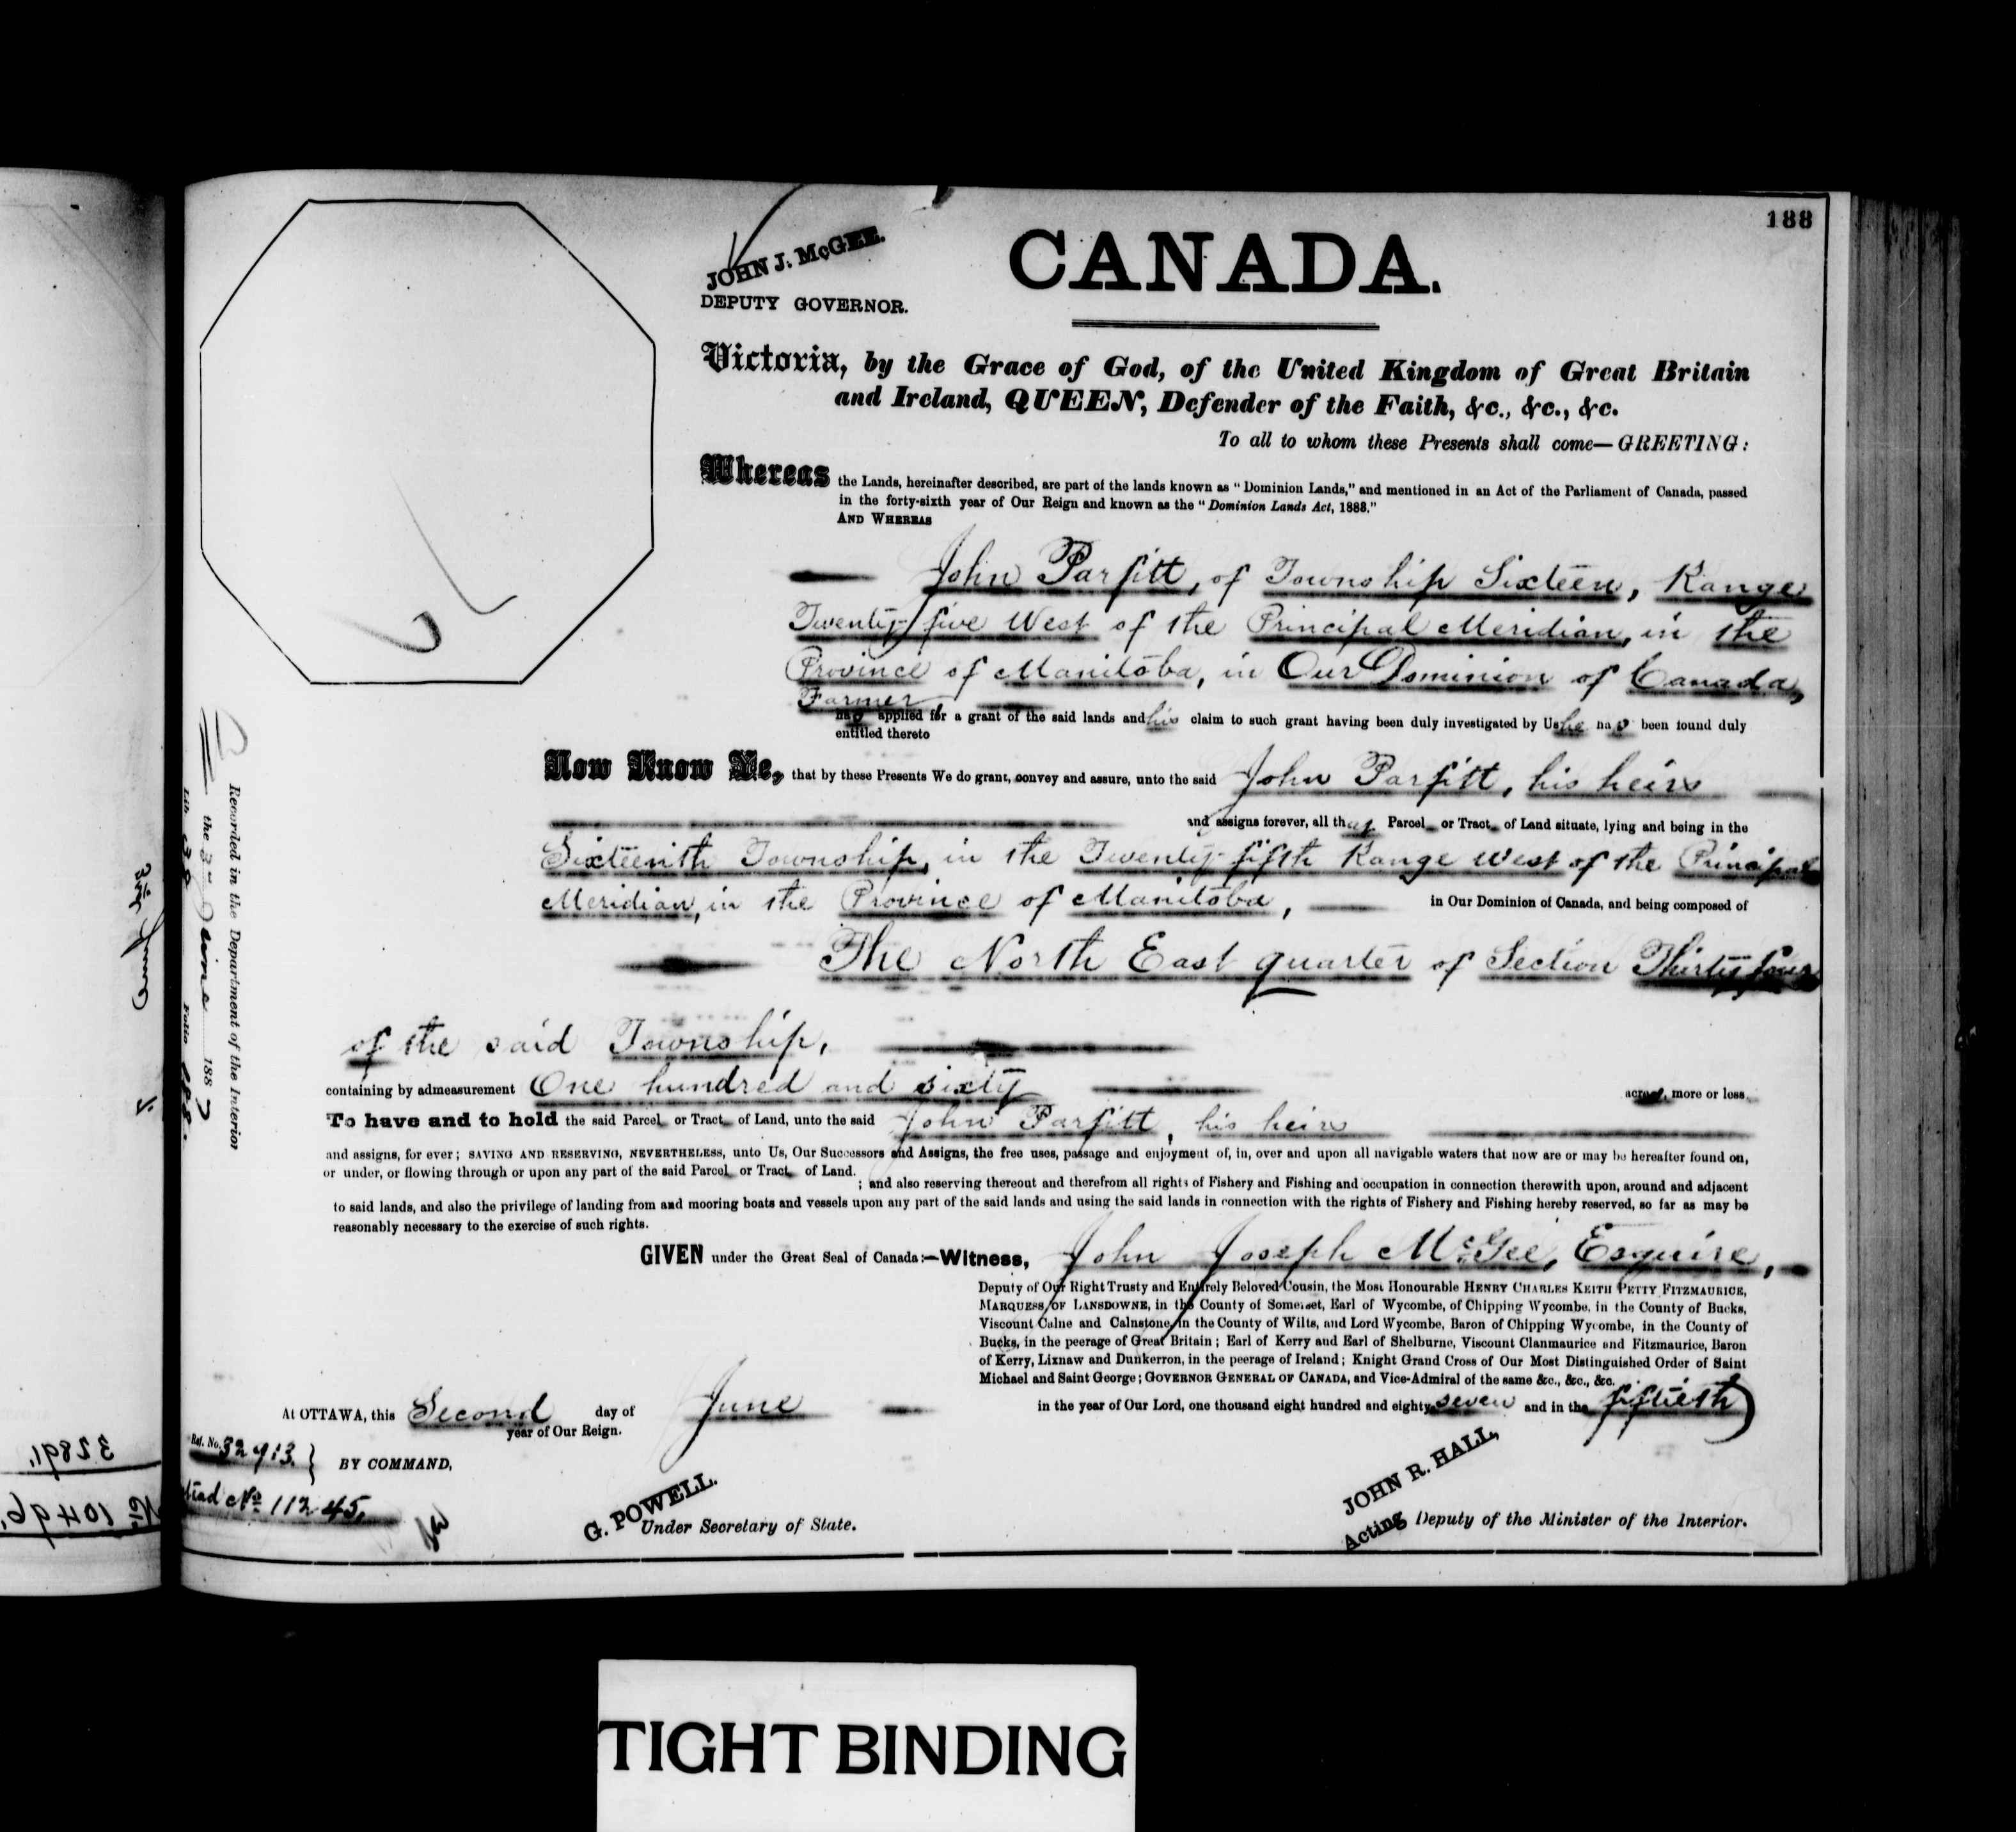 188
JOHN J. McGEE.
DEPUTY GOVERNOR.
CANADA.
Victoria, by the Grace of God, of the United Kingdom of Great Britain
and Ireland, QUEEN, Defender of the Faith, &c., &c., &c.
To all to whom these Presents shall come—GREETING:
Whereas the Lands, hereinafter described, are part of the lands known as "Dominion Lands," and mentioned in an Act of the Parliament of Canada, passed
in the forty-sixth year of Our Reign and known as the "Dominion Lands Act, 1883."
AND WHEREAS
John Parfitt, of Township Sixteen, Range
Twenty-five West of the Principal Meridian, in the
Province of Manitoba, in Our Dominion of Canada,
Farmer,
has applied for a grant of the said lands and his claim to such grant having been duly investigated by Us he has been found duly
entitled thereto
Now Know Ye, that by these Presents We do grant, convey and assure, unto the said John Parfitt, his heirs
and assigns forever, all that Parcel or Tract of Land situate, lying and being in the
Sixteenth Township, in the Twenty-fifth Range West of the Principal
Meridian, in the Province of Manitoba, in Our Dominion of Canada, and being composed of
The North East quarter of Section Thirty four
of the said Township,
containing by admeasurement One hundred and sixty acres, more or less.
To have and to hold the said Parcel or Tract of Land, unto the said John Parfitt, his heirs
and assigns, for ever; SAVING AND RESERVING, NEVERTHELESS, unto Us, Our Successors and Assigns, the free uses, passage and enjoyment of, in, over and upon all navigable waters that now are or may be hereafter found on,
or under, or flowing through or upon any part of the said Parcel or Tract of Land.
; and also reserving thereout and therefrom all rights of Fishery and Fishing and occupation in connection therewith upon, around and adjacent
to said lands, and also the privilege of landing from and mooring boats and vessels upon any part of the said lands and using the said lands in connection with the rights of Fishery and Fishing hereby reserved, so far as may be
reasonably necessary to the exercise of such rights.
GIVEN under the Great Seal of Canada:—Witness, John Joseph McGee, Esquire,
Deputy of Our Right Trusty and Entirely Beloved Cousin, the Most Honourable HENRY CHARLES KEITH PETTY FITZMAURICE,
MARQUESS OF LANSDOWNE, in the County of Somerset, Earl of Wycombe, of Chipping Wycombe, in the County of Bucks,
Viscount Calne and Calnstone, in the County of Wilts, and Lord Wycombe, Baron of Chipping Wycombe, in the County of
Bucks, in the peerage of Great Britain; Earl of Kerry and Earl of Shelburne, Viscount Clanmaurice and Fitzmaurice, Baron
of Kerry, Lixnaw and Dunkerron, in the peerage of Ireland; Knight Grand Cross of Our Most Distinguished Order of Saint
Michael and Saint George; GOVERNOR GENERAL OF CANADA, and Vice-Admiral of the same &c., &c., &c.
At OTTAWA, this Second day of June in the year of Our Lord, one thousand eight hundred and eighty seven and in the fiftieth
year of Our Reign.
Ref. No. 32913. } BY COMMAND,
No 11245.
G. POWELL.
Under Secretary of State.
JOHN R. HALL,
Acting Deputy of the Minister of the Interior.
Recorded in the Department of the Interior
the 3rd June 1887
Lib. Folio 188.
32891.
No 10496.
TIGHT BINDING